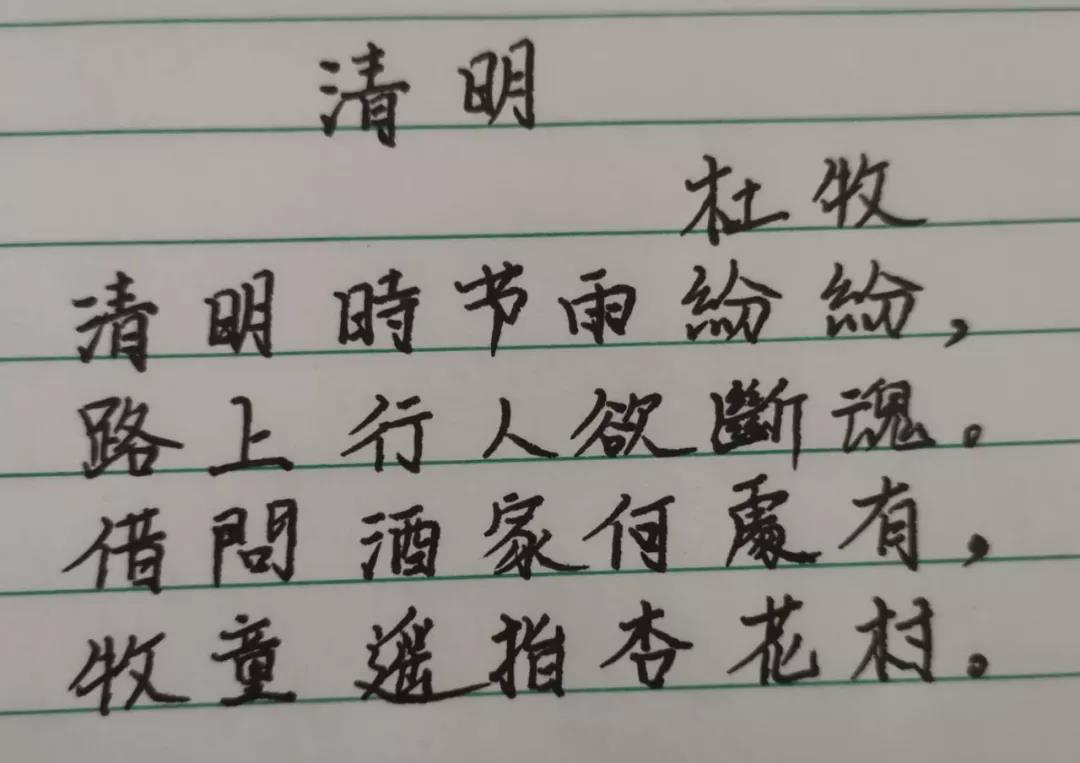 清明
杜牧
清明時节雨紛紛，
路上行人欲斷魂。
借問酒家何處有，
牧童遥指杏花村。